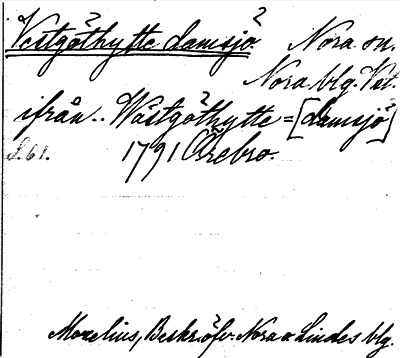 Vestgöthyttedamsjö. Nora sn.
Nora blg. Vst.
ifrån.. Wästgöthytte=[damsjö]
S. 61. 1791 Örebro.
Morelius, Beskr. öfv. Nora o Lindes blg.